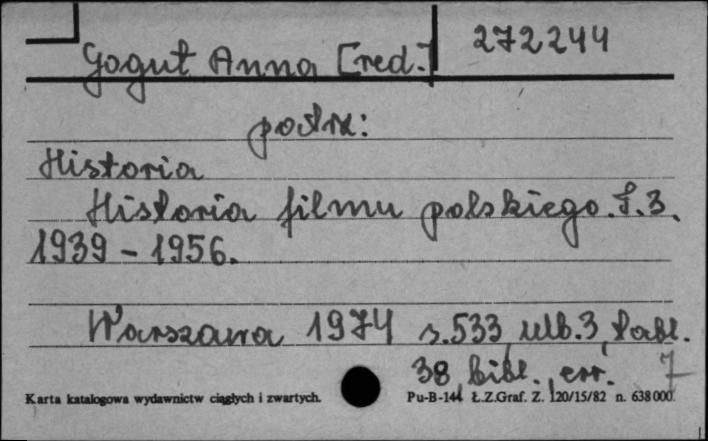 272244
Gogut Anna [red.]
patrz:
Historia
Historia filmu polskiego. T.3.
1939 - 1956.
Warszawa 1974 s.533, nlb.3, tabl.
38, bibl., err. 7
Karta katalogowa wydawnictw ciągłych i zwartych.
Pu-B-144 Ł.Z.Graf. Z. 120/15/82 n. 638000.